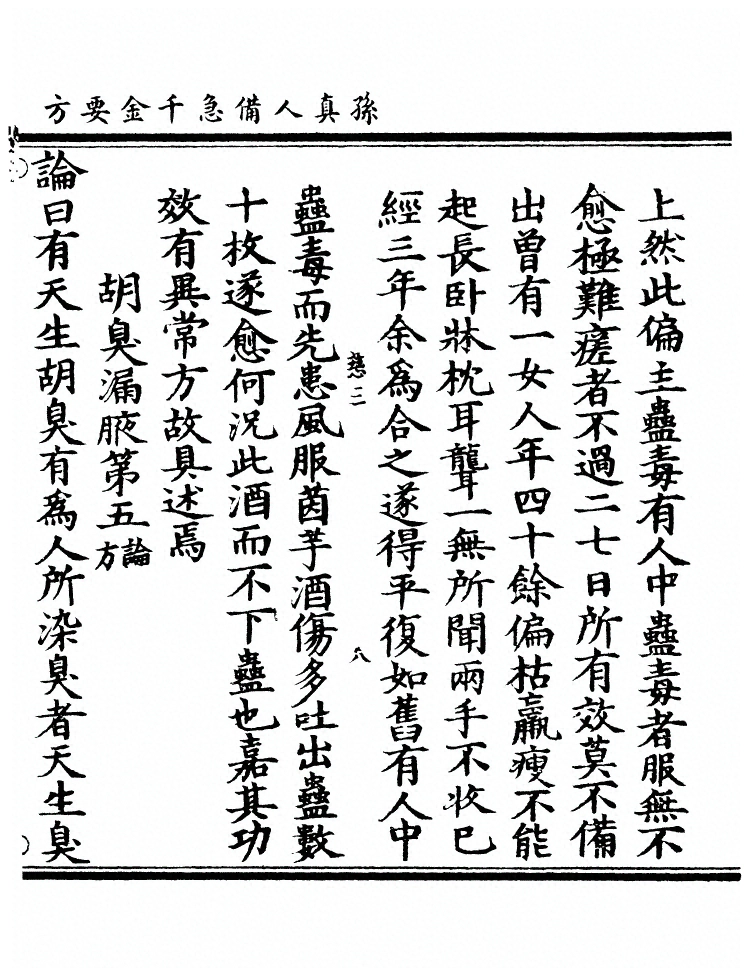 孫真人備急千金要方
上然此偏主蠱毒有人中蠱毒者服無不
愈極難瘥者不過二七日所有效莫不備
出曾有一女人年四十餘偏枯羸瘦不能
起長卧牀枕耳聾一無所聞兩手不收已
經三年余為合之遂得平復如舊有人中
慈三
八
蠱毒而先患風服茵芋酒傷多吐出蠱數
十枚遂愈何況此酒而不下蠱也嘉其功
效有異常方故具述焉
胡臭漏腋第五論方
論曰有天生胡臭有為人所染臭者天生臭